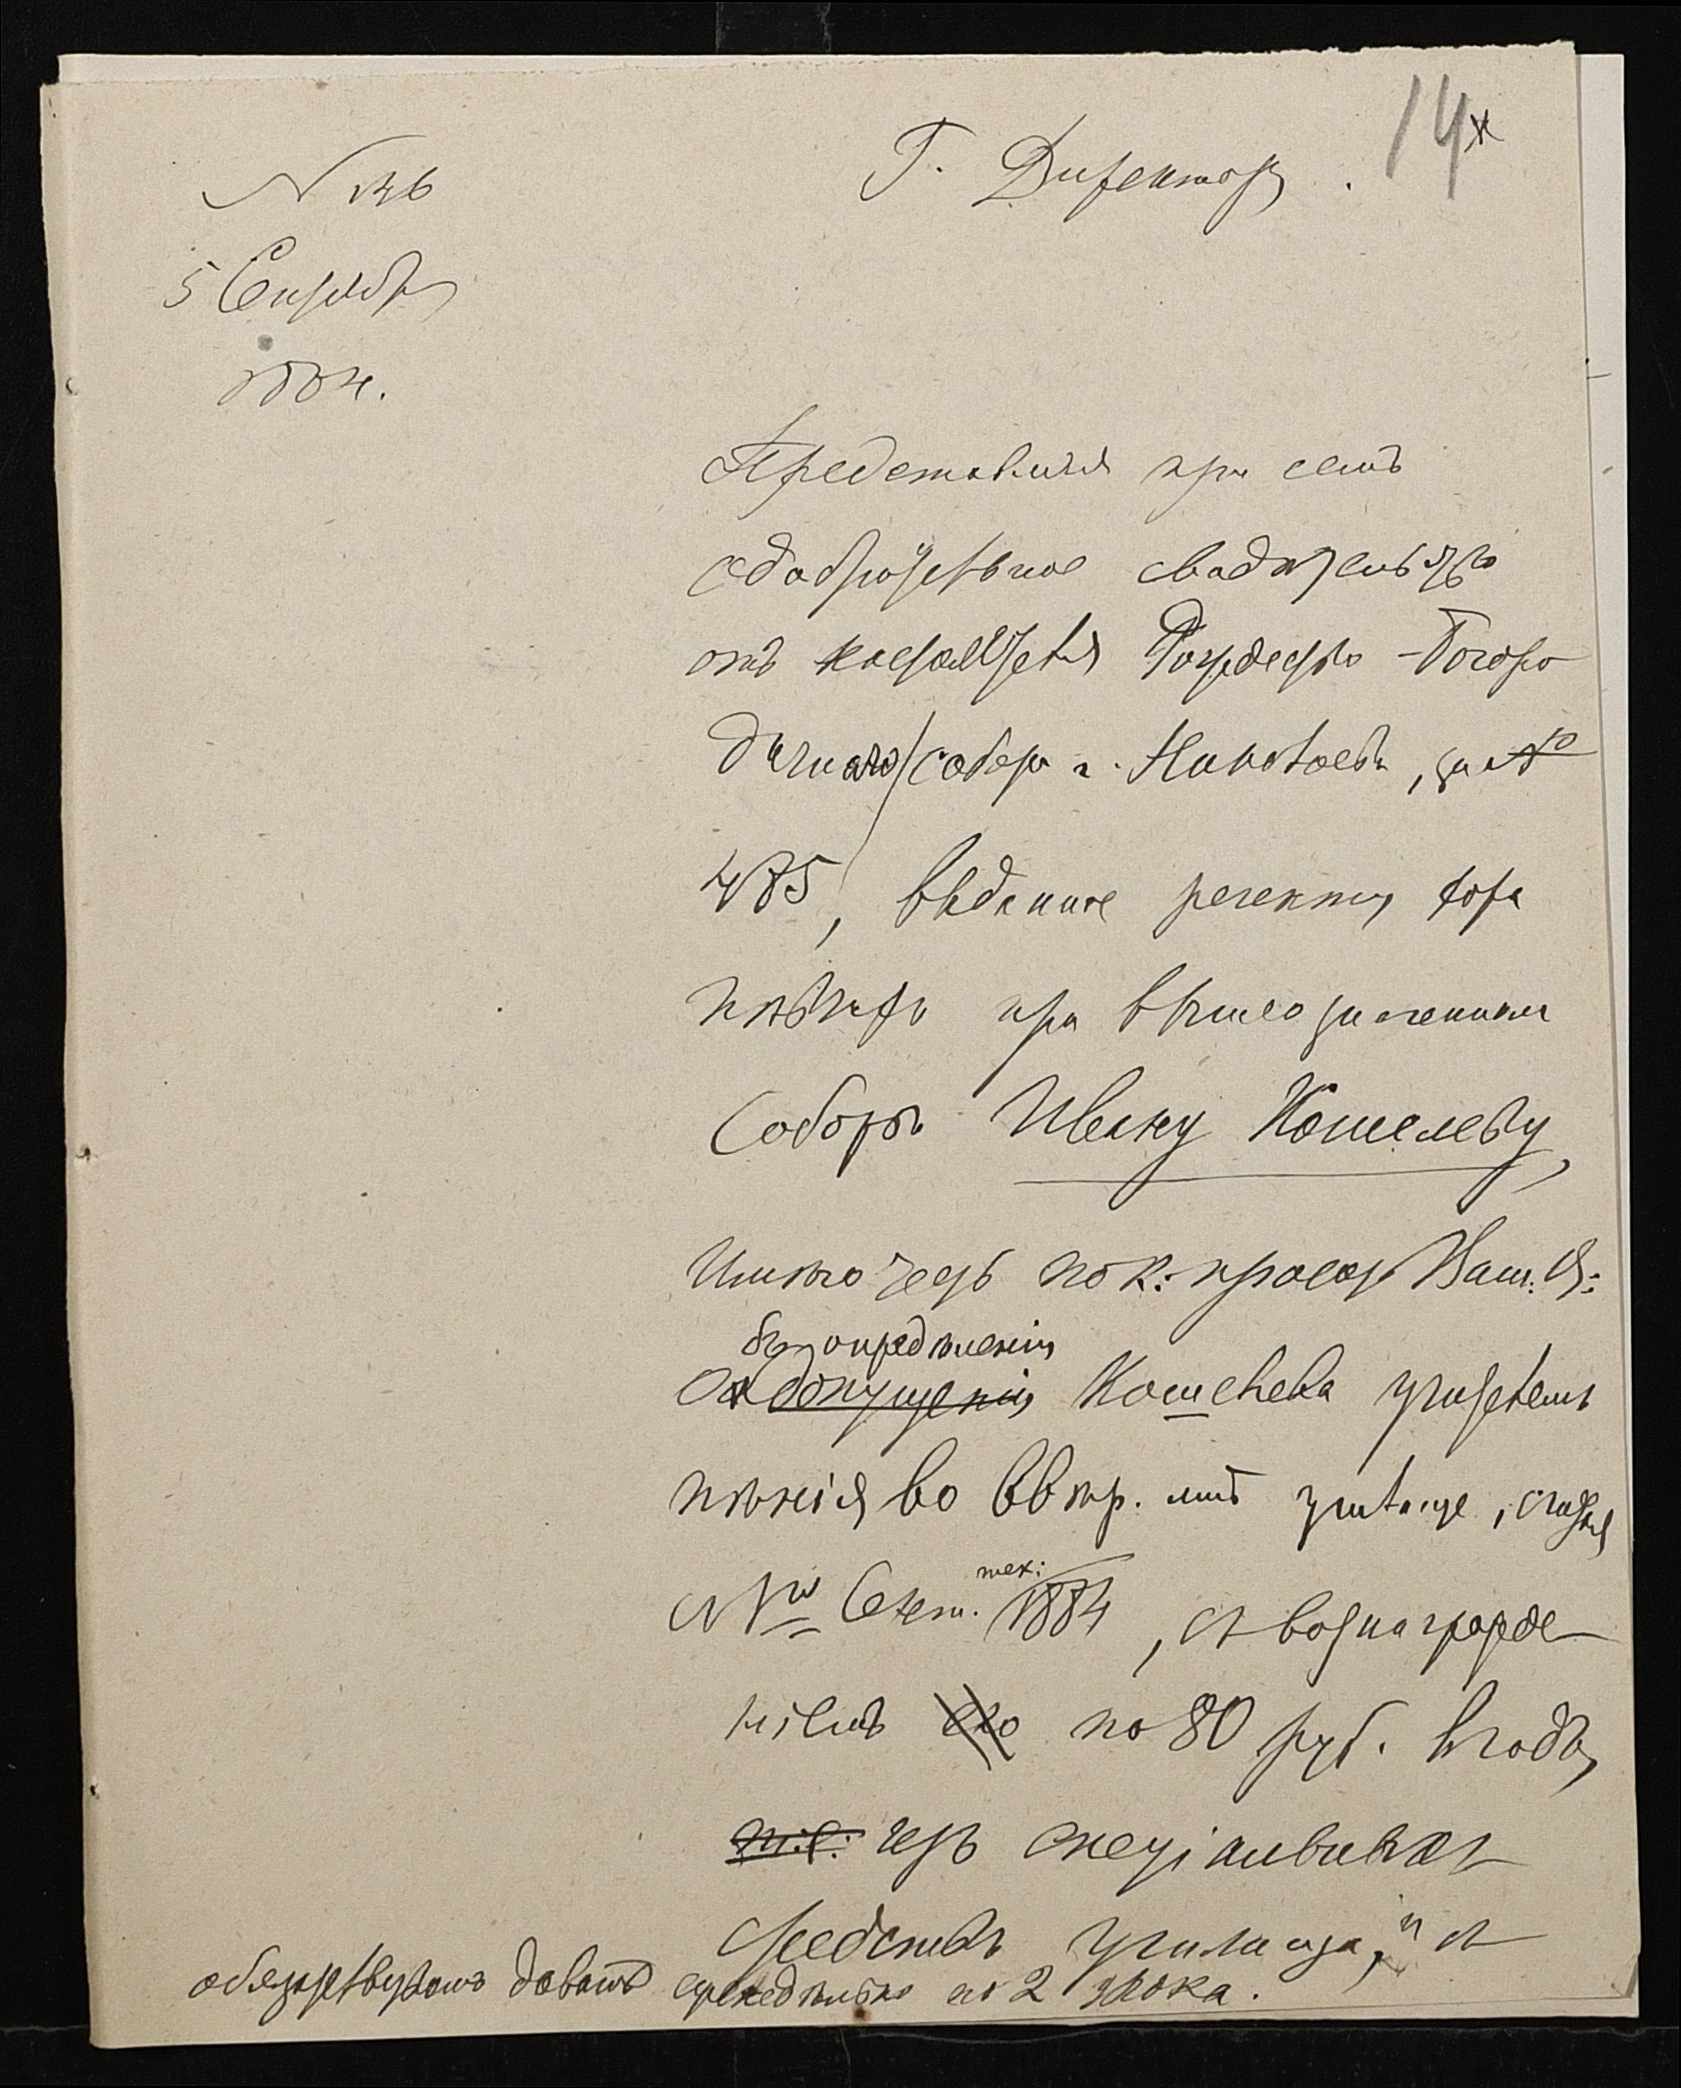 14
Г. Директору.
№ 136
5 Сентября
1884.
Представляя при семъ
одобрительное свидѣтельство
отъ настоятеля Рождество-Богоро
дичнаго собора г. Николаева, за №
485, выданное регенту хора
пѣвчихъ при вышеозначенномъ
Соборѣ Ивану Кошелеву,
Имѣю честь пок: просить Ваш:
объ опредѣленіи
о допущеніи Кошелева учителемъ
пѣнія во ввѣр. мнѣ училище, считая
съ 1го Сент. тек: 1884, съ вознагражде
ніемъ его по 80 руб. въ годъ,
изъ спеціальныхъ
средствъ училища, и съ
обязательствомъ давать еженедѣльно по 2 урока.